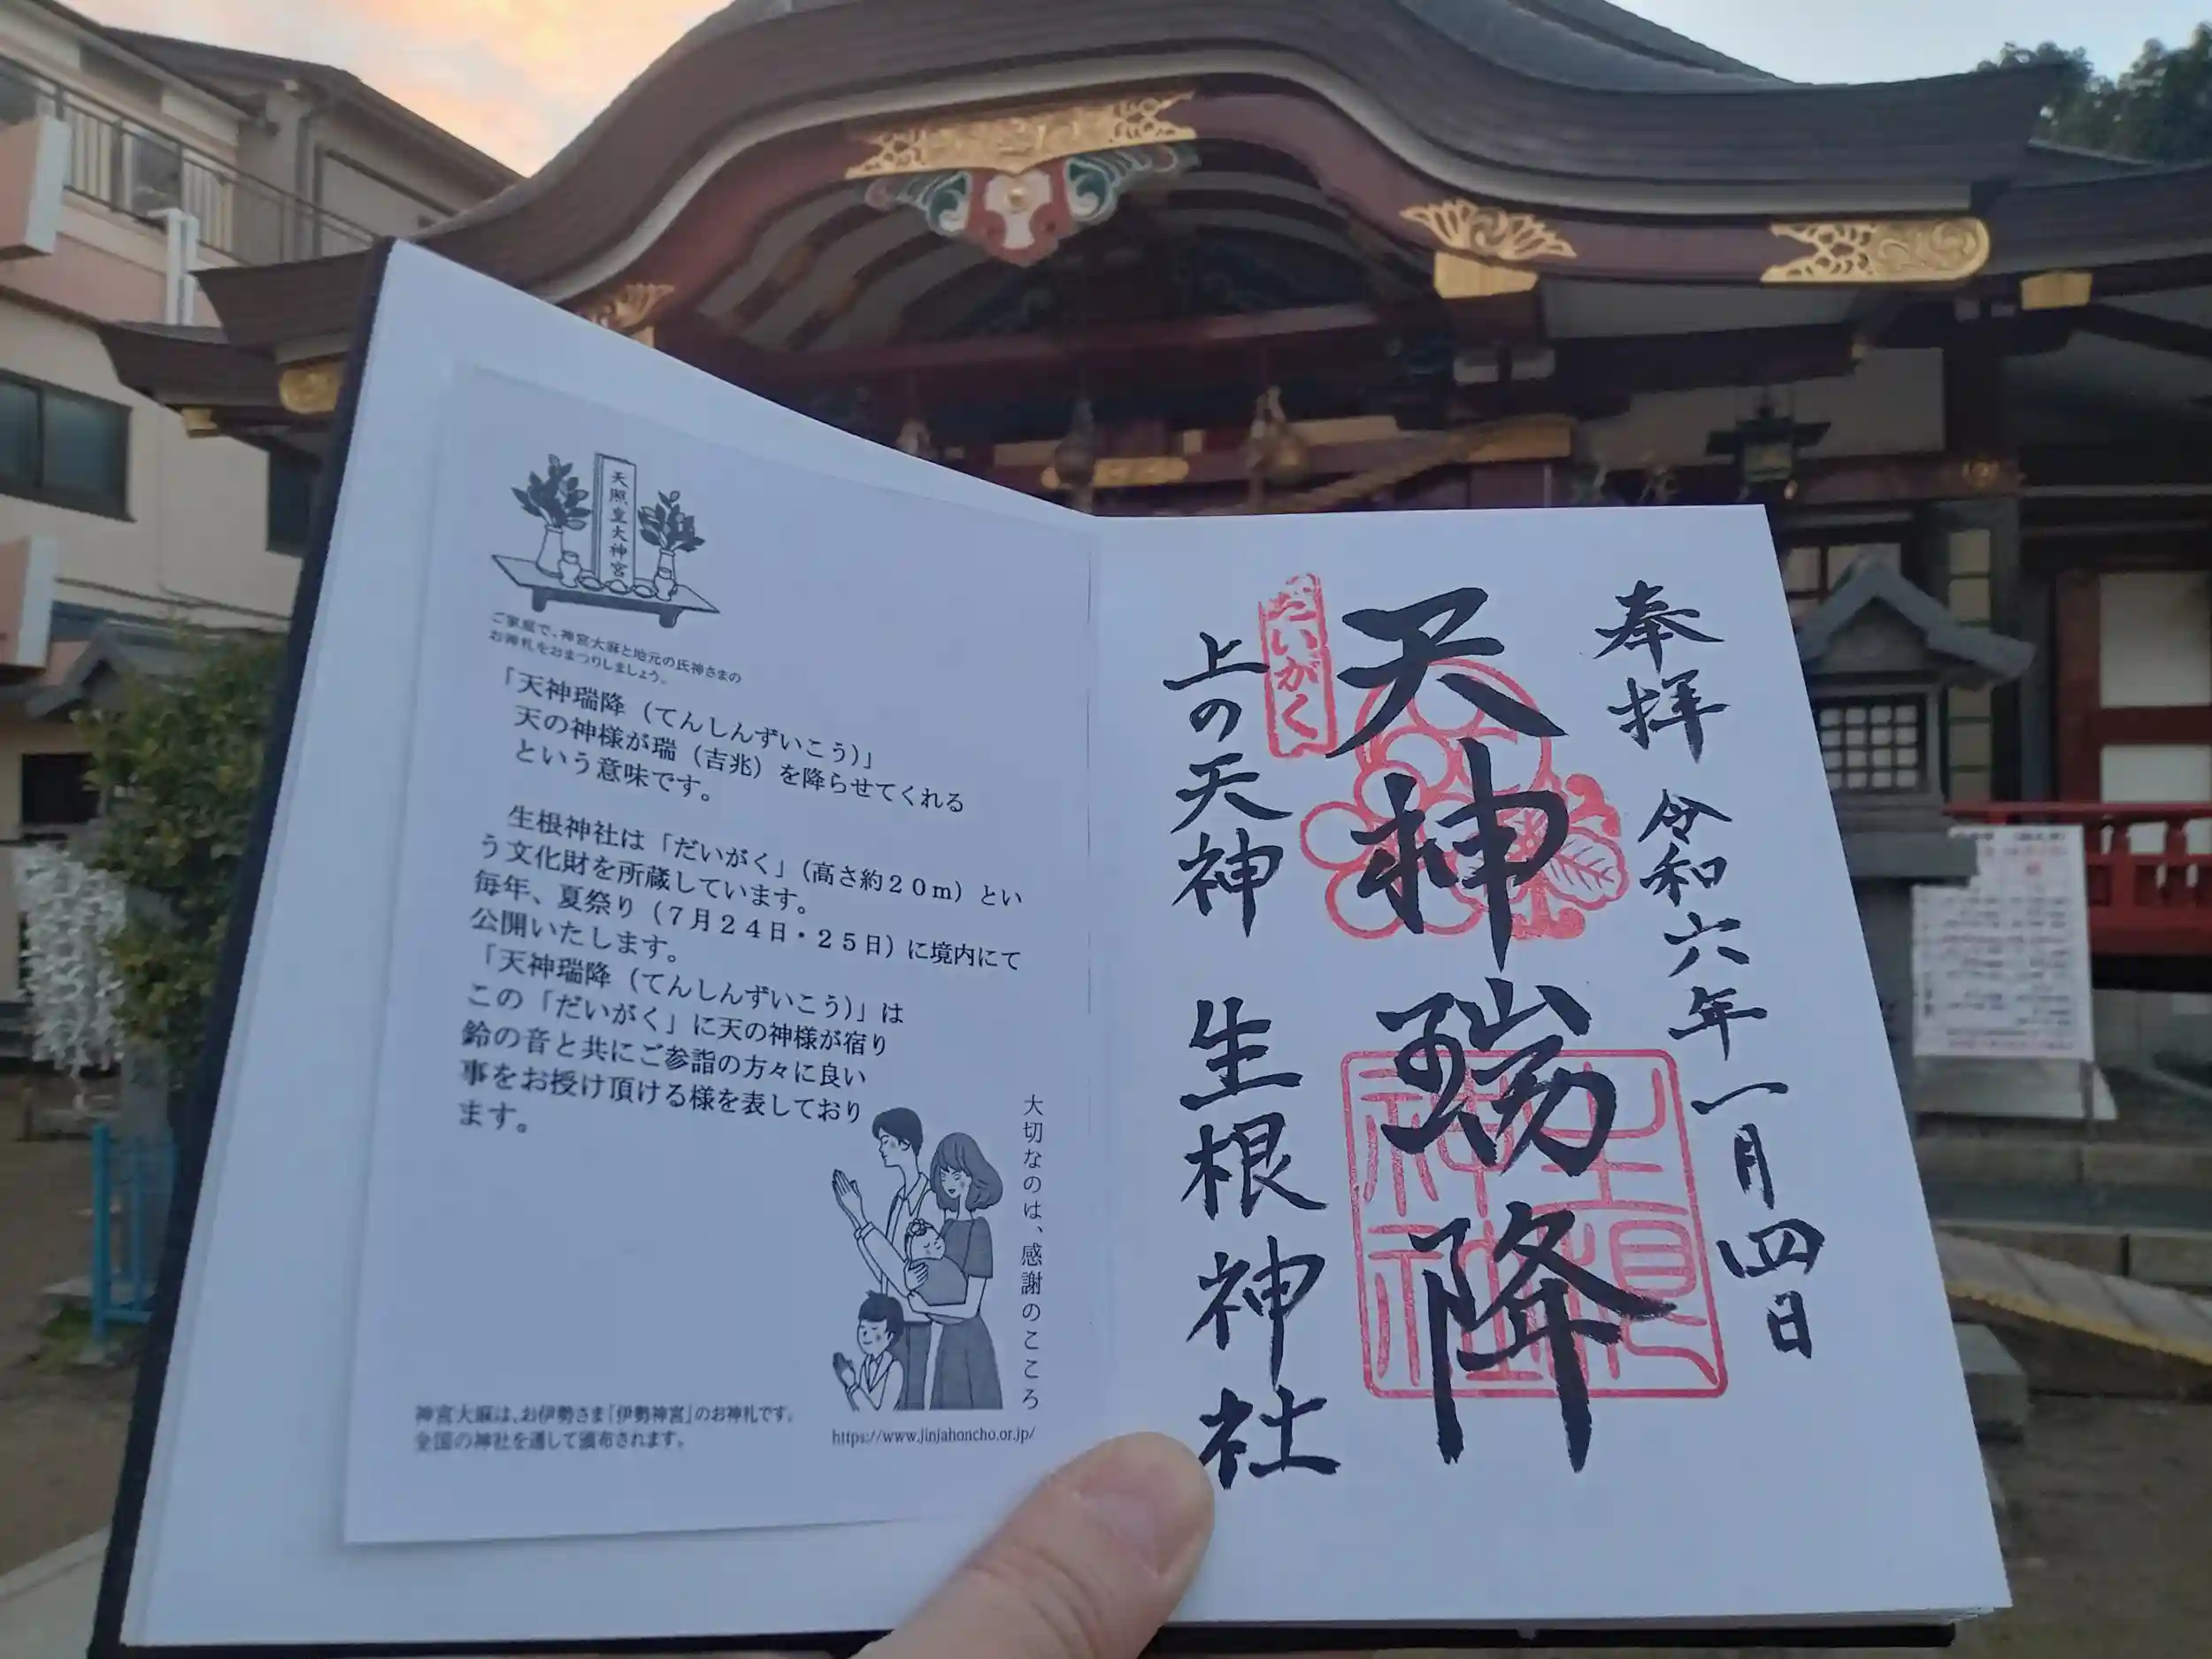 天照皇大神宮
ご家庭で、神宮大麻と地元の氏神さまの
お神札をおまつりしましょう。
「天神瑞降（てんしんずいこう）」
天の神様が瑞（吉兆）を降らせてくれる
という意味です。
生根神社は「だいがく」（高さ約２０ｍ）とい
う文化財を所蔵しています。
毎年、夏祭り（７月２４日・２５日）に境内にて
公開いたします。
「天神瑞降（てんしんずいこう）」は
この「だいがく」に天の神様が宿り
鈴の音と共にご参詣の方々に良い
事をお授け頂ける様を表しており
ます。
大切なのは、感謝のこころ
神宮大麻は、お伊勢さま「伊勢神宮」のお神札です。
全国の神社を通して頒布されます。
https://www.jinjahoncho.or.jp/
奉拝 令和六年一月四日
天神瑞降
だいがく
上の天神 生根神社
生根神社